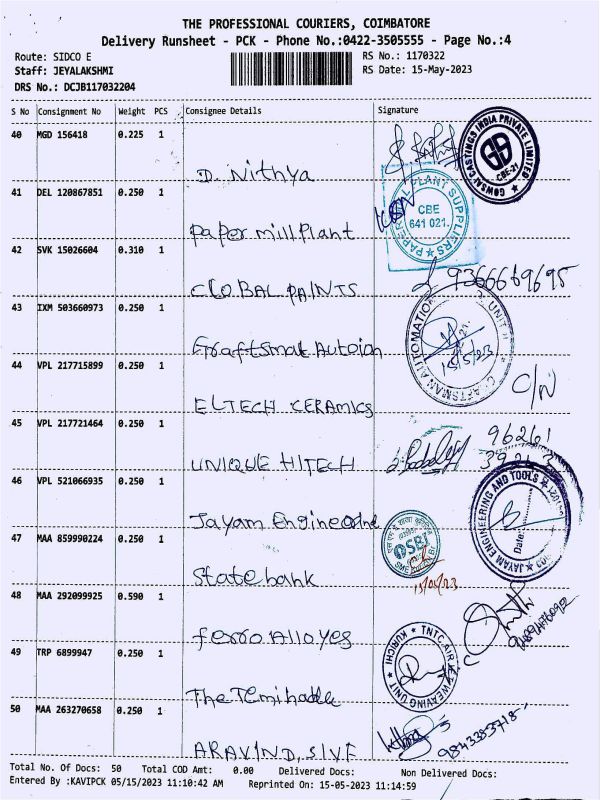 THE PROFESSIONAL COURIERS, COIMBATORE
Delivery Runsheet - PCK - Phone No.:0422-3505555 - Page No.:4
Route: SIDCO E RS No.: 1170322
Staff: JEYALAKSHMI RS Date: 15-May-2023
DRS No.: DCJB117032204
S No Consignment No Weight PCS Consignee Details Signature
40 MGD 156418 0.225 1
D. Nithya
GOWSAI CASTINGS INDIA PRIVATE LIMITED CBE-21
41 DEL 120867851 0.250 1
Paper mill Plant
PLANT SUPPLIERS CBE 641 021.
42 SVK 15026604 0.310 1
GLOBAL PAINTS
9366669695
43 IXM 503660973 0.250 1
CRAFTSMAN AUTOMATION UNIT
15/5/23
44 VPL 217715899 0.250 1
ELTECH CERAMICS
C/N
45 VPL 217721464 0.250 1
UNIQUE HITECH
96261
46 VPL 521066935 0.250 1
Jayam
JAYAM ENGINEERING AND TOOLS
Date:
47 MAA 859990224 0.250 1
State bank
SBI
48 MAA 292099925 0.590 1
ferro Alloyes
49 TRP 6899947 0.250 1
The
WEAVING UNIT KURICHI
50 MAA 263270658 0.250 1
ARAVIND,
Total No. Of Docs: 50 Total COD Amt: 0.00 Delivered Docs: Non Delivered Docs:
Entered By :KAVIPCK 05/15/2023 11:10:42 AM Reprinted On: 15-05-2023 11:14:59